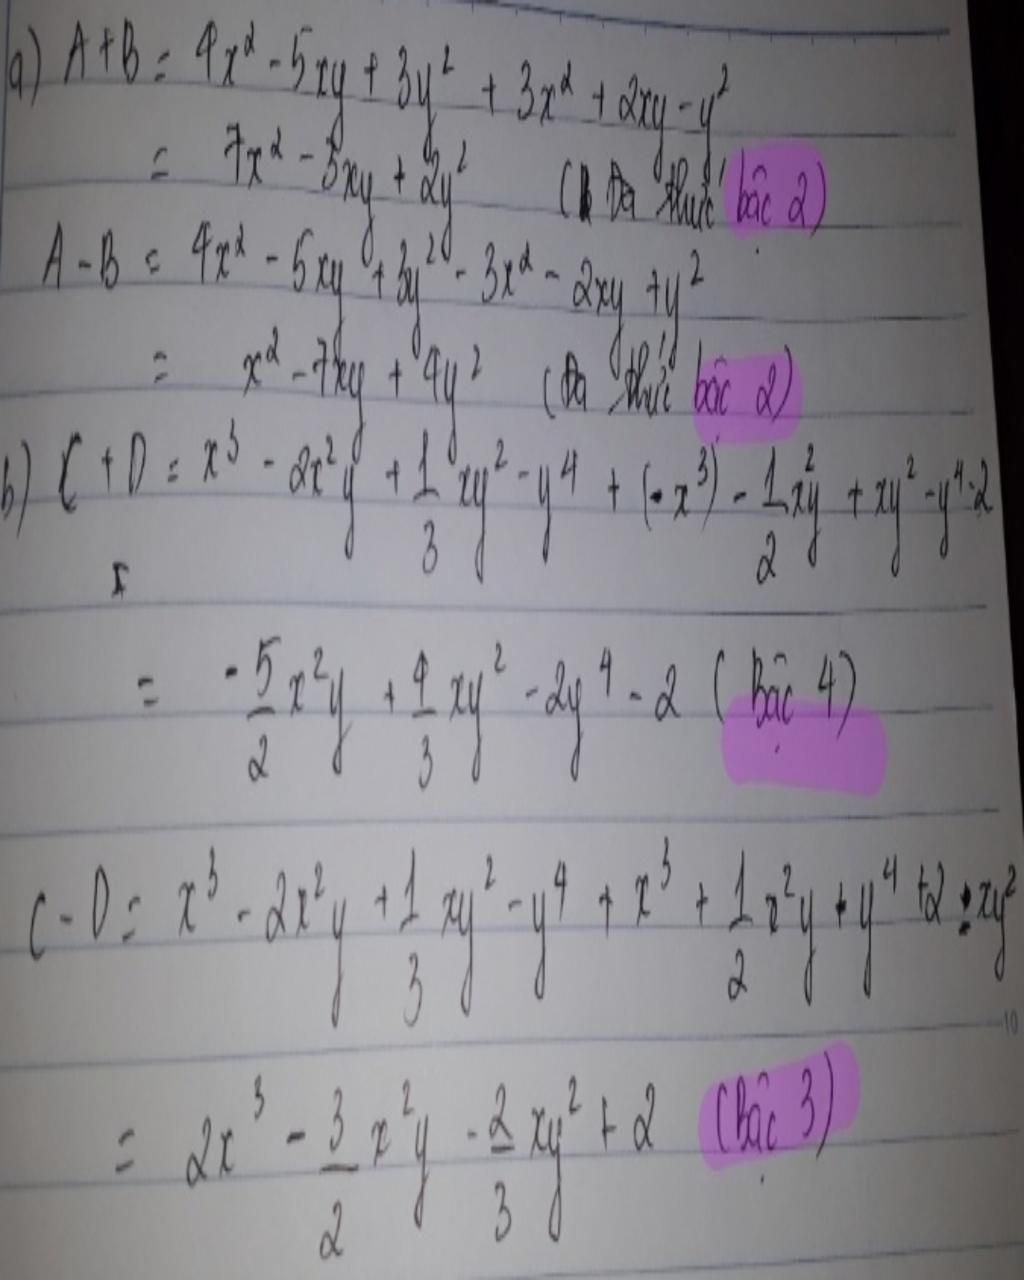 a) A+B = 4x² - 5xy + 3y² + 3x² + 2xy - y²
= 7x² - 3xy + 2y² (Đa thức bậc 2)
A - B = 4x² - 5xy + 3y² - 3x² - 2xy + y²
= x² - 7xy + 4y² (Đa thức bậc 2)
b) C + D = x³ - 2x²y + 1/3 xy² - y⁴ + (-x³) - 1/2 x²y + xy² - y⁴ - 2
= -5/2 x²y + 4/3 xy² - 2y⁴ - 2 (Bậc 4)
C - D = x³ - 2x²y + 1/3 xy² - y⁴ + x³ + 1/2 x²y + y⁴ + 2 - xy²
10
= 2x³ - 3/2 x²y - 2/3 xy² + 2 (Bậc 3)